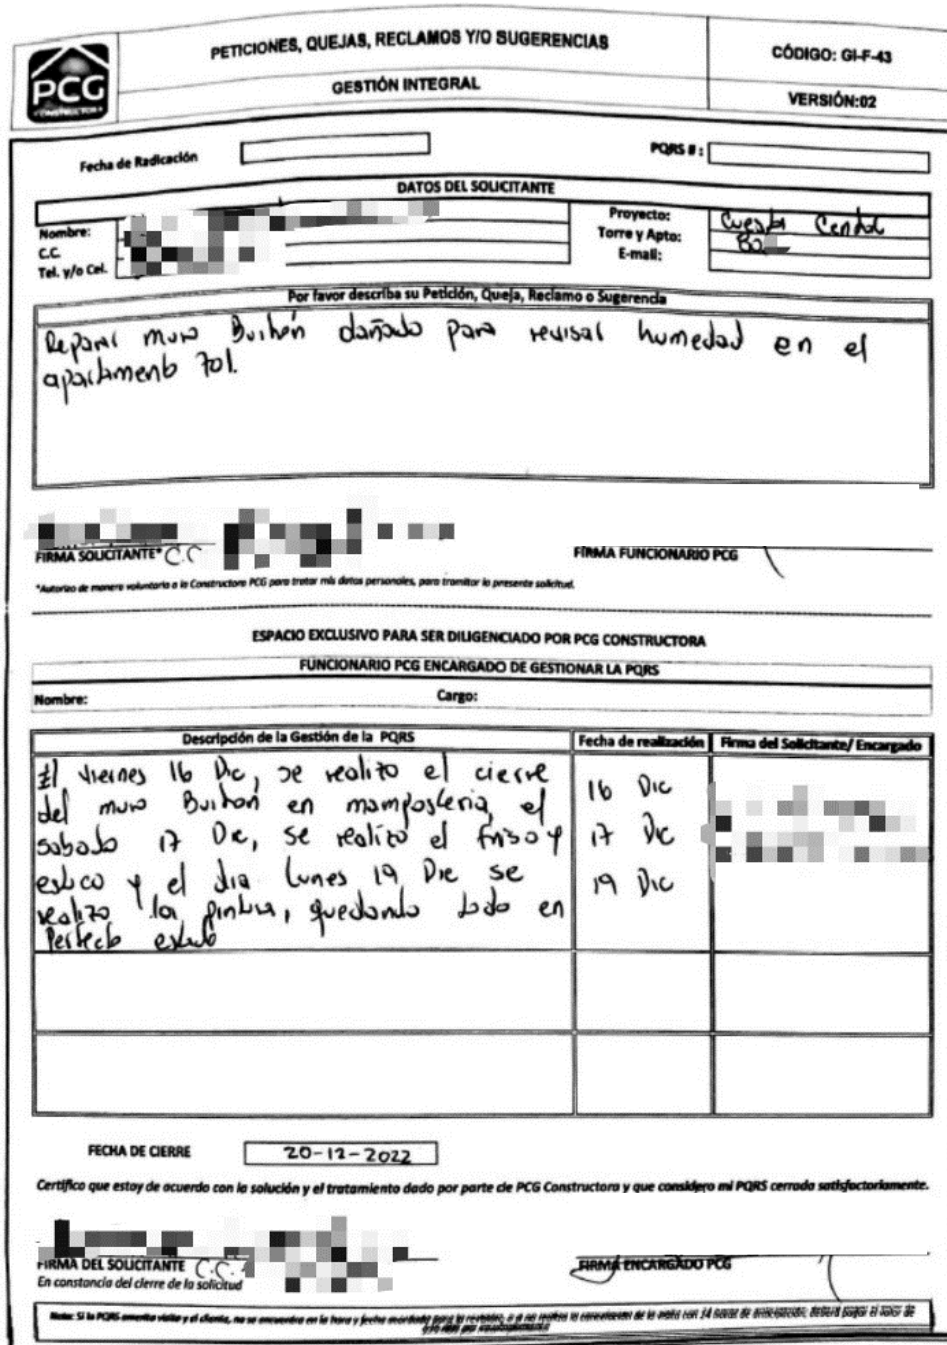 PCG
CONSTRUCTORA
PETICIONES, QUEJAS, RECLAMOS Y/O SUGERENCIAS
GESTIÓN INTEGRAL
CÓDIGO: GI-F-43
VERSIÓN:02
Fecha de Radicación
PQRS # :
DATOS DEL SOLICITANTE
Nombre:
C.C.
Tel. y/o Cel.
Proyecto: Cuesta Central
Torre y Apto: 80
E-mail:
Por favor describa su Petición, Queja, Reclamo o Sugerencia
Reparar muro Buitrón dañado para revisar humedad en el
apartamento 701.
FIRMA SOLICITANTE* C.C
FIRMA FUNCIONARIO PCG
*Autorizo de manera voluntaria a la Constructora PCG para tratar mis datos personales, para tramitar la presente solicitud.
ESPACIO EXCLUSIVO PARA SER DILIGENCIADO POR PCG CONSTRUCTORA
FUNCIONARIO PCG ENCARGADO DE GESTIONAR LA PQRS
Nombre:
Cargo:
Descripción de la Gestión de la PQRS
Fecha de realización
Firma del Solicitante/ Encargado
El viernes 16 Dic, se realizo el cierre
del muro Buitron en mamposteria, el
sabado 17 Dic, se realizo el friso y
estuco y el dia lunes 19 Dic se
realizo la pintura, quedando todo en
Perfecto estado
16 Dic
17 Dic
19 Dic
FECHA DE CIERRE
20-12-2022
Certifico que estoy de acuerdo con la solución y el tratamiento dado por parte de PCG Constructora y que considero mi PQRS cerrada satisfactoriamente.
FIRMA DEL SOLICITANTE C.C.
En constancia del cierre de la solicitud
FIRMA ENCARGADO PCG
Nota: Si la PQRS amerita visita y el cliente, no se encuentra en la hora y fecha acordada para la revisión, o si no realiza la cancelación de la visita con 24 horas de anticipación, deberá pagar el valor de